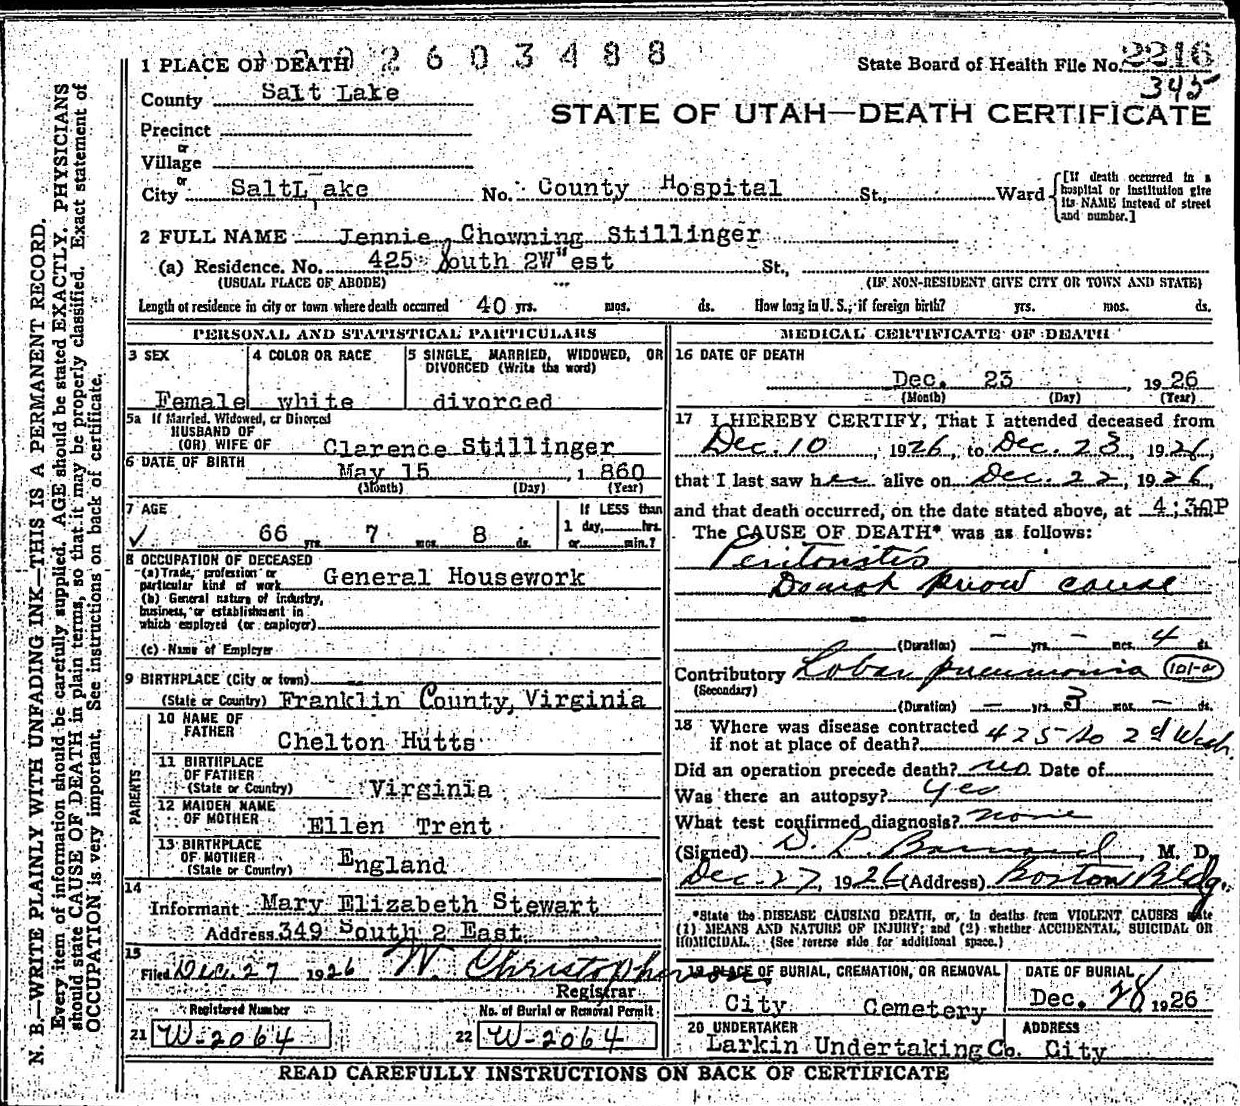 2 6 0 3 4 8 8
1 PLACE OF DEATH
State Board of Health File No. 2216
345
County Salt Lake
STATE OF UTAH—DEATH CERTIFICATE
Precinct
or
Village
or
City SaltLake No. County Hospital St., Ward [If death occurred in a hospital or institution give its NAME instead of street and number.]
2 FULL NAME Jennie Chowning Stillinger
(a) Residence. No. 425 South 2W"est St.,
(USUAL PLACE OF ABODE) (IF NON-RESIDENT GIVE CITY OR TOWN AND STATE)
Length of residence in city or town where death occurred 40 yrs. mos. ds. How long in U. S., if foreign birth? yrs. mos. ds.
PERSONAL AND STATISTICAL PARTICULARS
3 SEX 4 COLOR OR RACE 5 SINGLE, MARRIED, WIDOWED, OR DIVORCED (Write the word)
Female white divorced
5a If Married, Widowed, or Divorced
HUSBAND OF
(OR) WIFE OF Clarence Stillinger
6 DATE OF BIRTH May 15, 1 860
(Month) (Day) (Year)
7 AGE If LESS than
1 day, hrs.
66 yrs. 7 mos. 8 ds. or min.?
8 OCCUPATION OF DECEASED
(a) Trade, profession or
particular kind of work General Housework
(b) General nature of industry,
business, or establishment in
which employed (or employer)
(c) Name of Employer
9 BIRTHPLACE (City or town)
(State or Country) Franklin County, Virginia
PARENTS
10 NAME OF
FATHER Chelton Hutts
11 BIRTHPLACE
OF FATHER
(State or Country) Virginia
12 MAIDEN NAME
OF MOTHER Ellen Trent
13 BIRTHPLACE
OF MOTHER
(State or Country) England
14
Informant Mary Elizabeth Stewart
Address 349 South 2 East
15
Filed Dec. 27 1926 W. Christopherson
Registrar
Registered Number No. of Burial or Removal Permit
21 W-2064 22 W-2064
MEDICAL CERTIFICATE OF DEATH
16 DATE OF DEATH
Dec. 23, 1926
(Month) (Day) (Year)
17 I HEREBY CERTIFY, That I attended deceased from
Dec. 10, 1926, to Dec. 23, 1926,
that I last saw her alive on Dec. 22, 1926,
and that death occurred, on the date stated above, at 4:30P
The CAUSE OF DEATH* was as follows:
Peritonitis
cause
(Duration) – yrs. – mos. 4 ds.
Contributory Lobar pneumonia 101-a
(Secondary)
(Duration) – yrs. 3 mos. – ds.
18 Where was disease contracted
if not at place of death? 425 So 2d West
Did an operation precede death? no Date of
Was there an autopsy? Yes
What test confirmed diagnosis? none
(Signed) D. L. Barnard, M. D.
Dec. 27, 1926 (Address) Boston Bldg.
*State the DISEASE CAUSING DEATH, or, in deaths from VIOLENT CAUSES state
(1) MEANS AND NATURE OF INJURY; and (2) whether ACCIDENTAL, SUICIDAL OR
HOMICIDAL. (See reverse side for additional space.)
19 PLACE OF BURIAL, CREMATION, OR REMOVAL DATE OF BURIAL
City Cemetery Dec. 28 1926
20 UNDERTAKER ADDRESS
Larkin Undertaking Co. City
READ CAREFULLY INSTRUCTIONS ON BACK OF CERTIFICATE
N. B.—WRITE PLAINLY WITH UNFADING INK—THIS IS A PERMANENT RECORD.
Every item of information should be carefully supplied. AGE should be stated EXACTLY. PHYSICIANS
should state CAUSE OF DEATH in plain terms, so that it may be properly classified. Exact statement of
OCCUPATION is very important. See instructions on back of certificate.